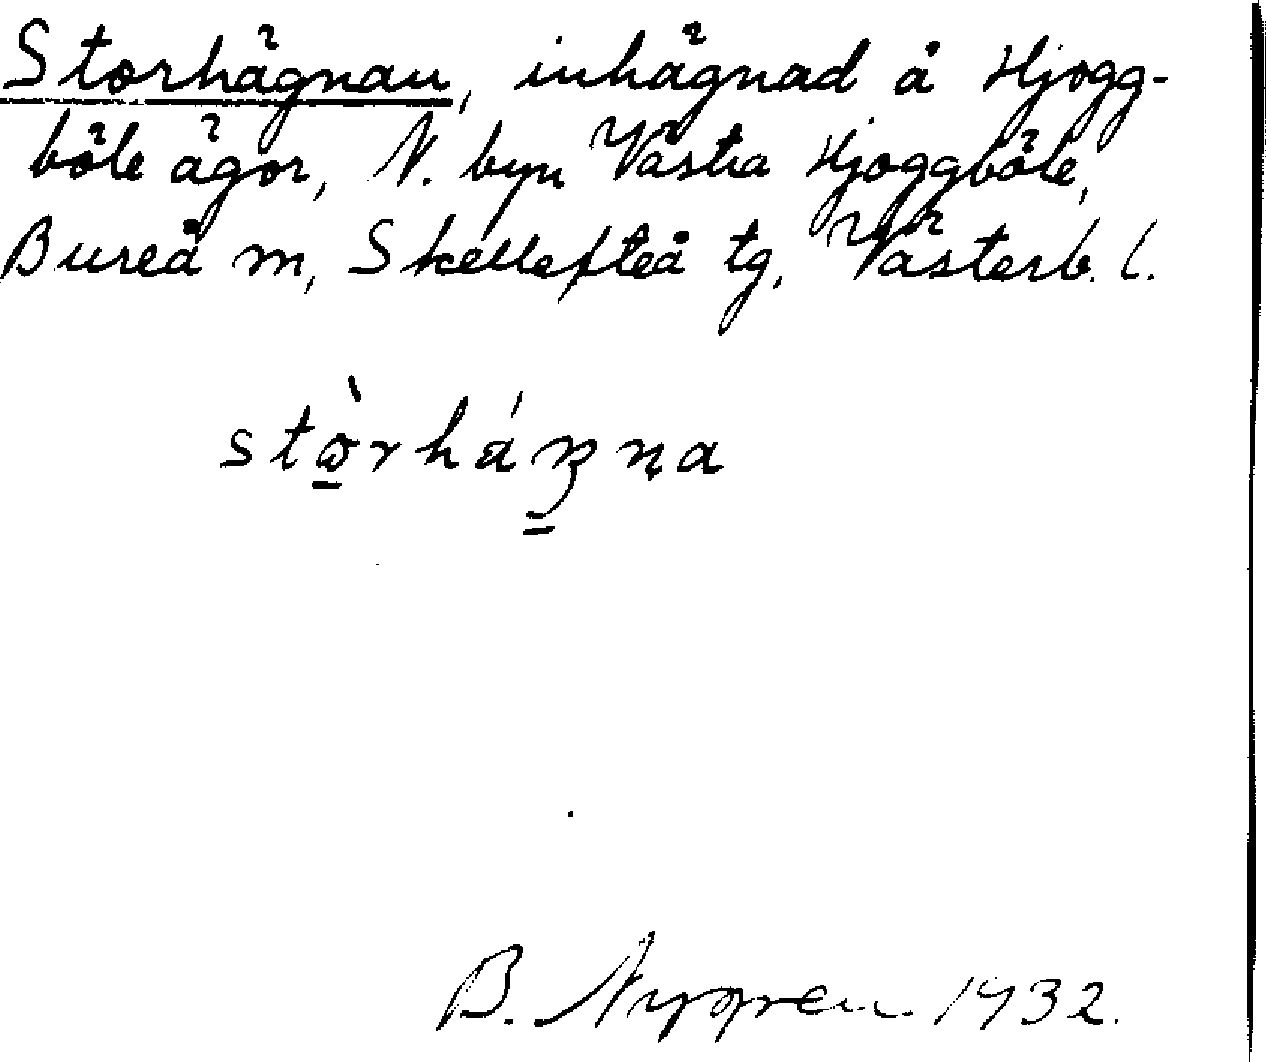 Storhägnan, inhägnad å Hjogg-
böle ägor, N. byn Västra Hjoggböle,
Bureå m, Skellefteå tg, Västerb. l.
B. Nygren 1932.